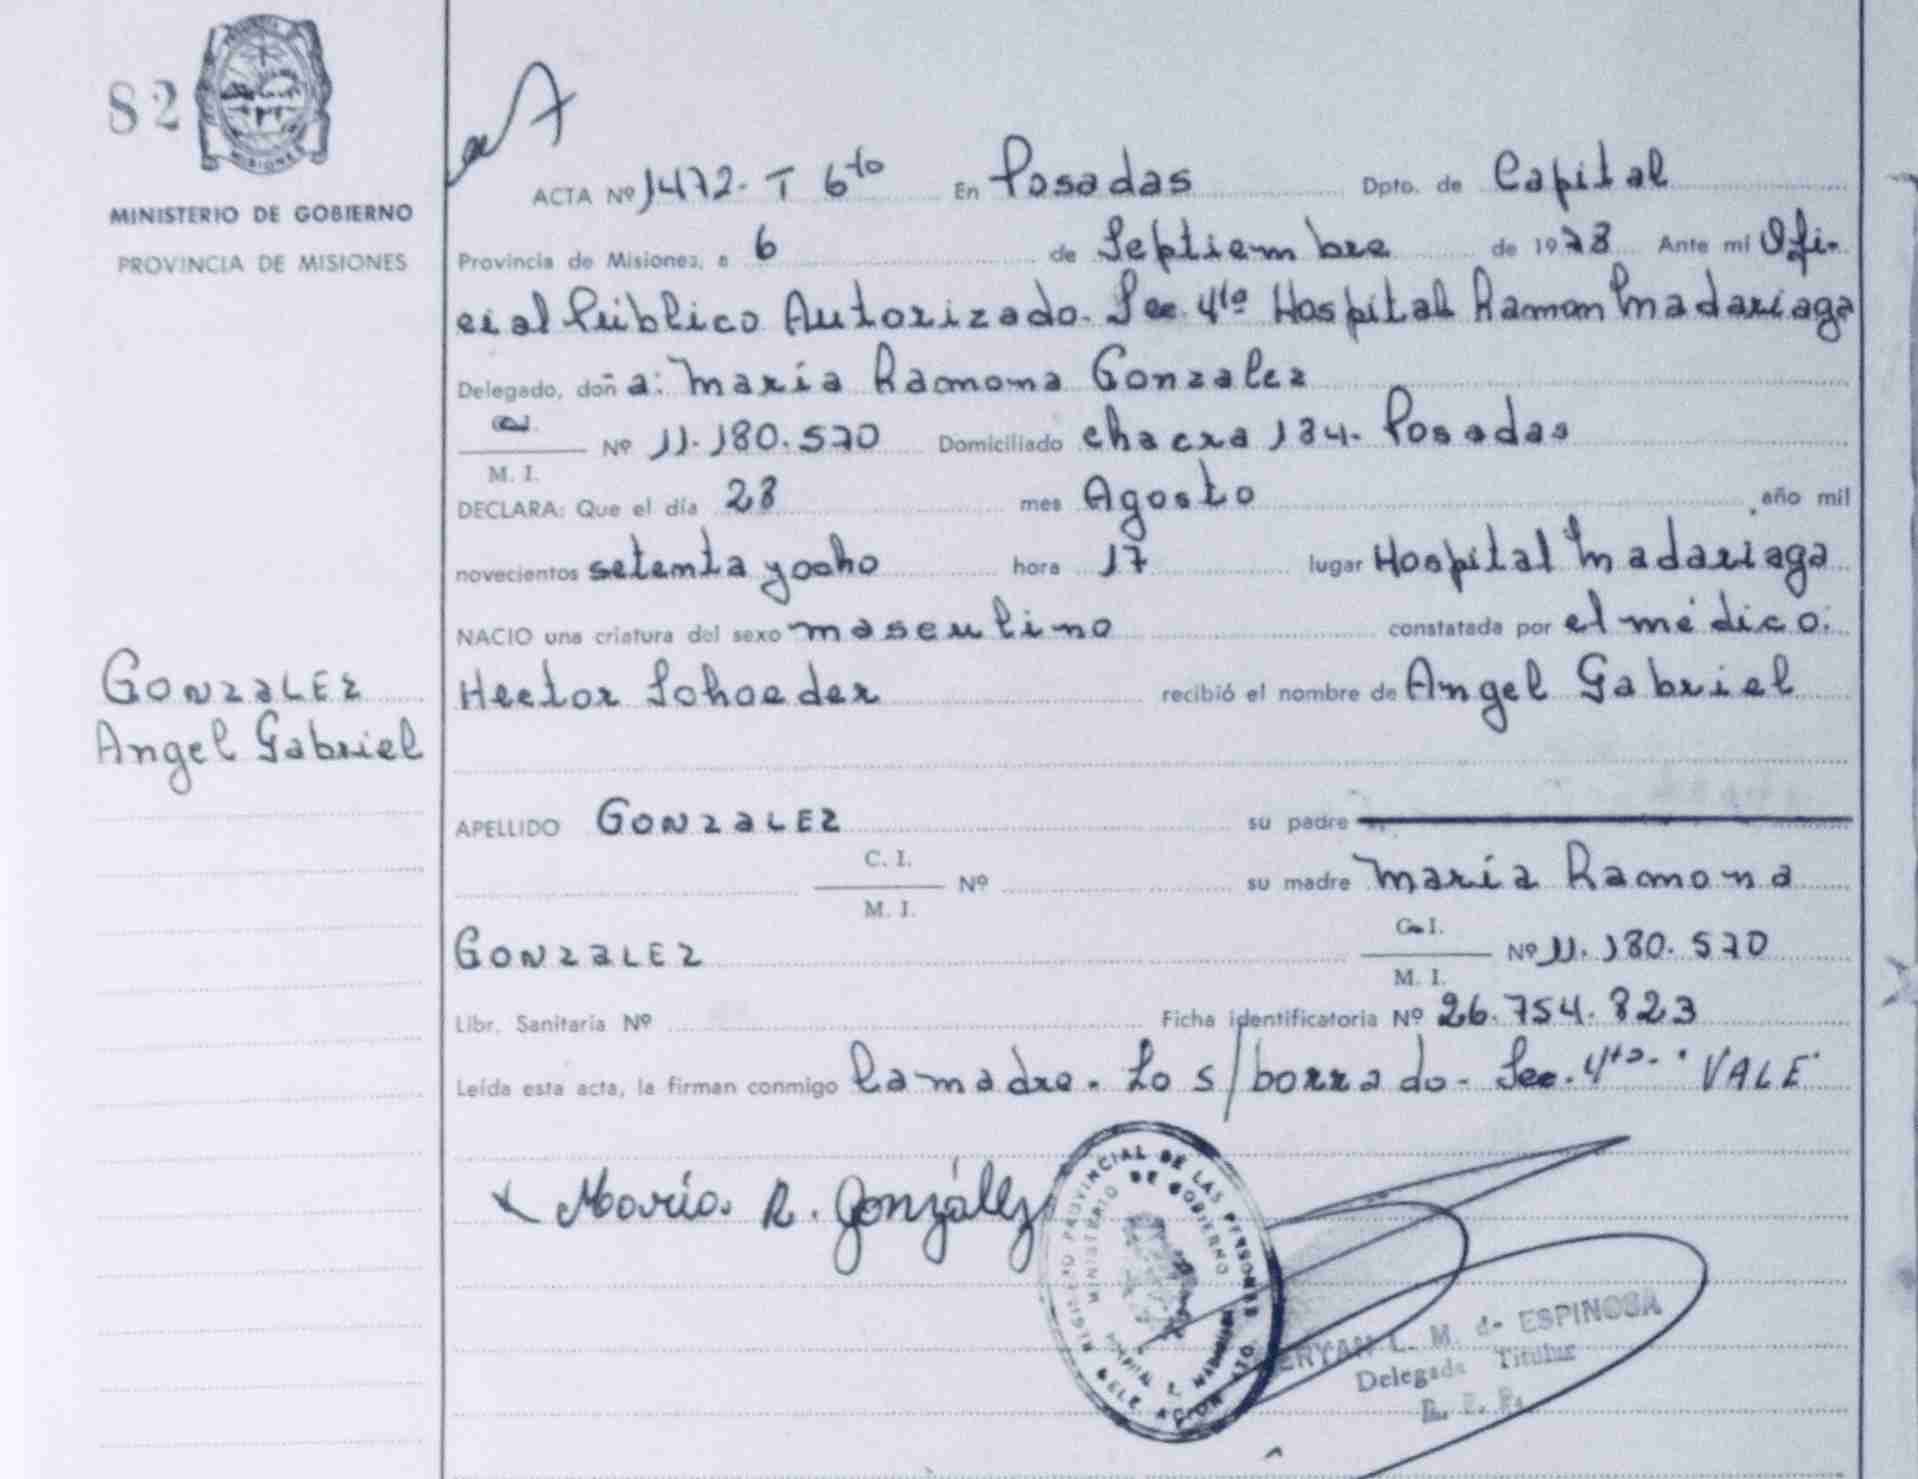 82
MISIONES
MINISTERIO DE GOBIERNO
PROVINCIA DE MISIONES
ACTA Nº 1472. T 6to En Posadas Dpto. de Capital
Provincia de Misiones, a 6 de Septiembre de 1978 Ante mi Ofi-
cial Público Autorizado. Sec. 4ta Hospital Ramon Madariaga
Delegado, doña: María Ramona Gonzalez
M. I. Nº 11.180.570 Domiciliado chacra 184. Posadas
DECLARA: Que el día 28 mes Agosto, año mil
novecientos setenta y ocho hora 17 lugar Hospital Madariaga
NACIO una criatura del sexo masculino constatada por el médico:
Hector Sohoeder recibió el nombre de Angel Gabriel
GONZALEZ
Angel Gabriel
APELLIDO GONZALEZ su padre
C. I.
M. I. Nº su madre María Ramona
GONZALEZ C. I.
M. I. Nº 11.180.570
Libr. Sanitaria Nº Ficha identificatoria Nº 26.754.823
Leída esta acta, la firman conmigo la madre. Lo s/borrado. Sec. 4ta. "VALE"
María R. González
REGISTRO PROVINCIAL DE LAS PERSONAS
MINISTERIO DE GOBIERNO
L. M. de ESPINOSA
Delegada Titular